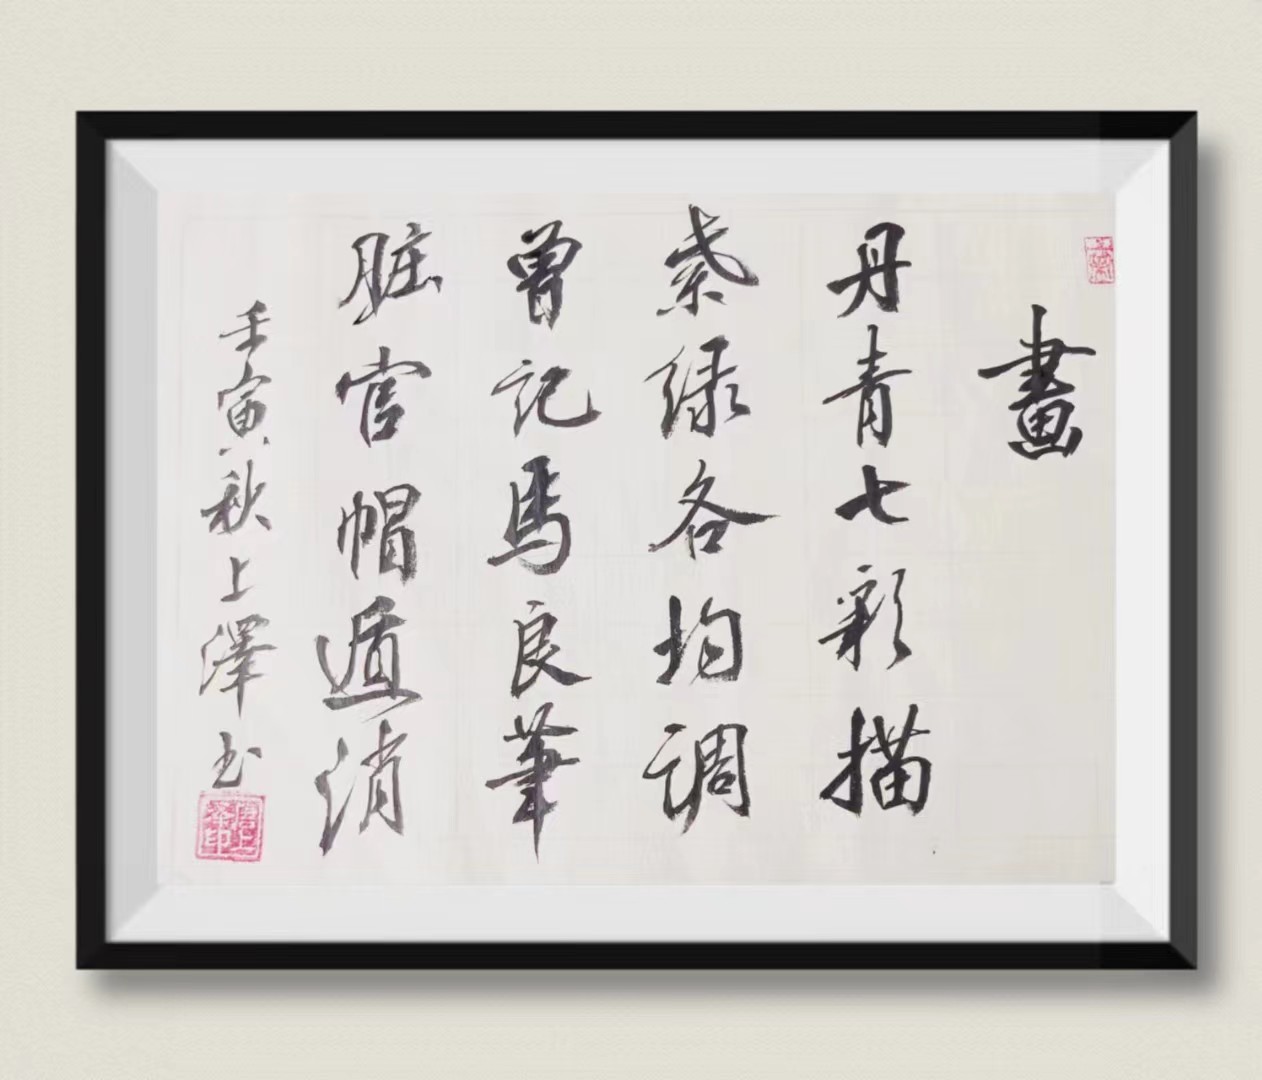 畫
丹青七彩描
紫绿各均调
曾记馬良筆
脏官帽遁消
壬寅秋上澤书